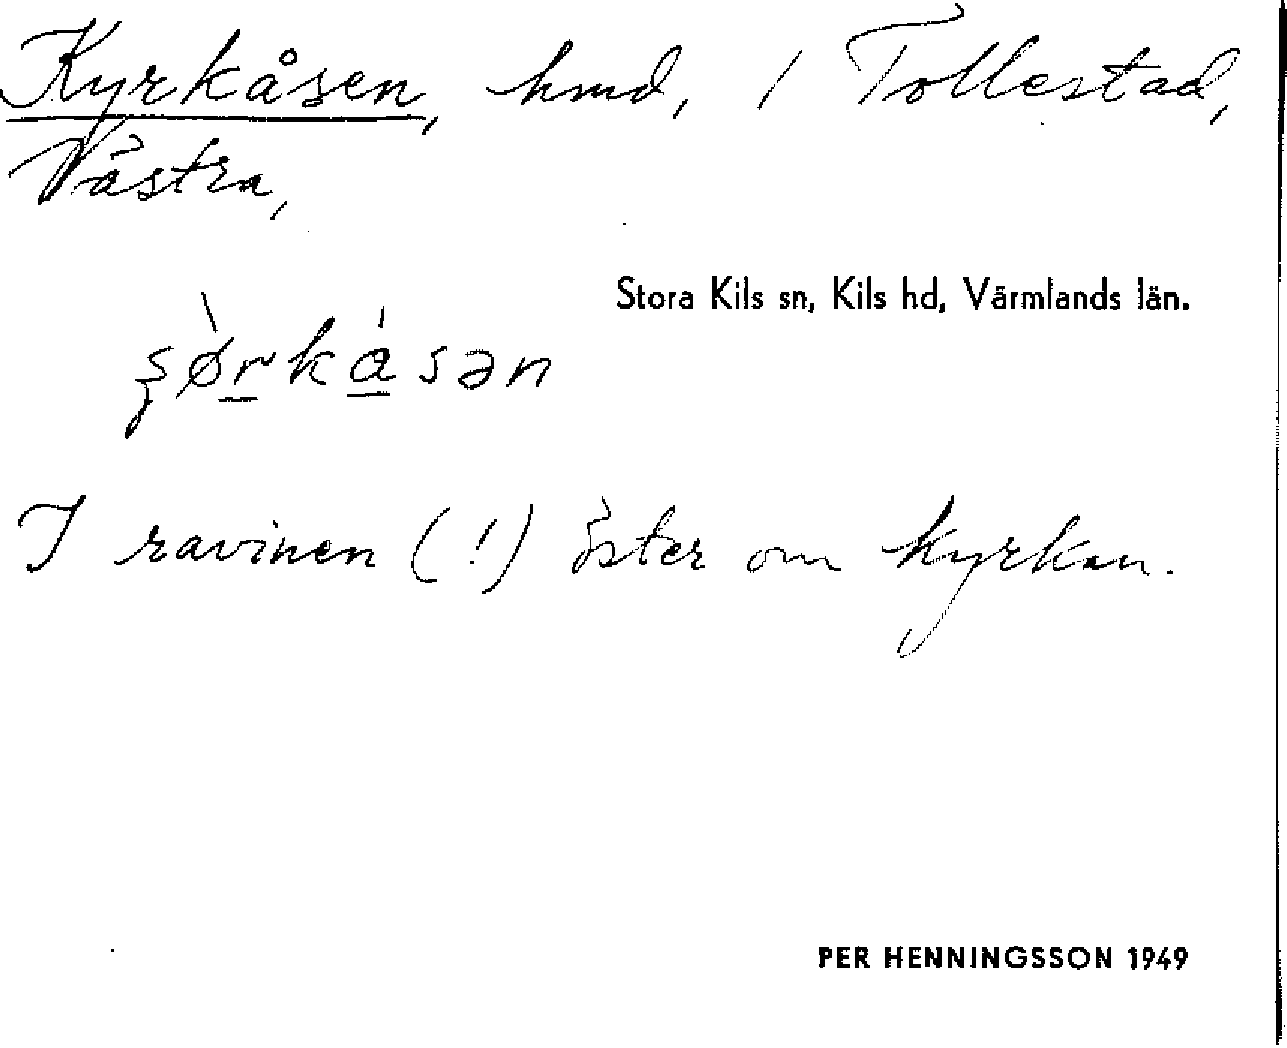 Kyrkåsen, hmd, / Tollestad,
Västra,
Stora Kils sn, Kils hd, Värmlands län.
I ravinen (!) öster om kyrkan.
PER HENNINGSSON 1949